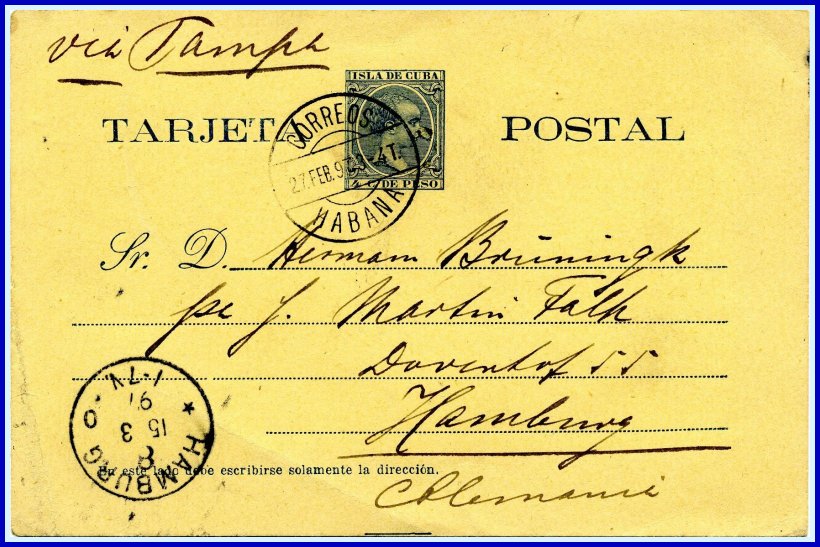 via Tampa
ISLA DE CUBA
TARJETA POSTAL
4 C. DE PESO
CORREOS
27.FEB.9 3-4T.
HABANA
Sr. D. Hermann Brüningk
pr J. Martin Falk
Dovenhof 55
Hamburg
En este lado debe escribirse solamente la dirección.
Alemania
HAMBURG O.
15 3
1-7 V